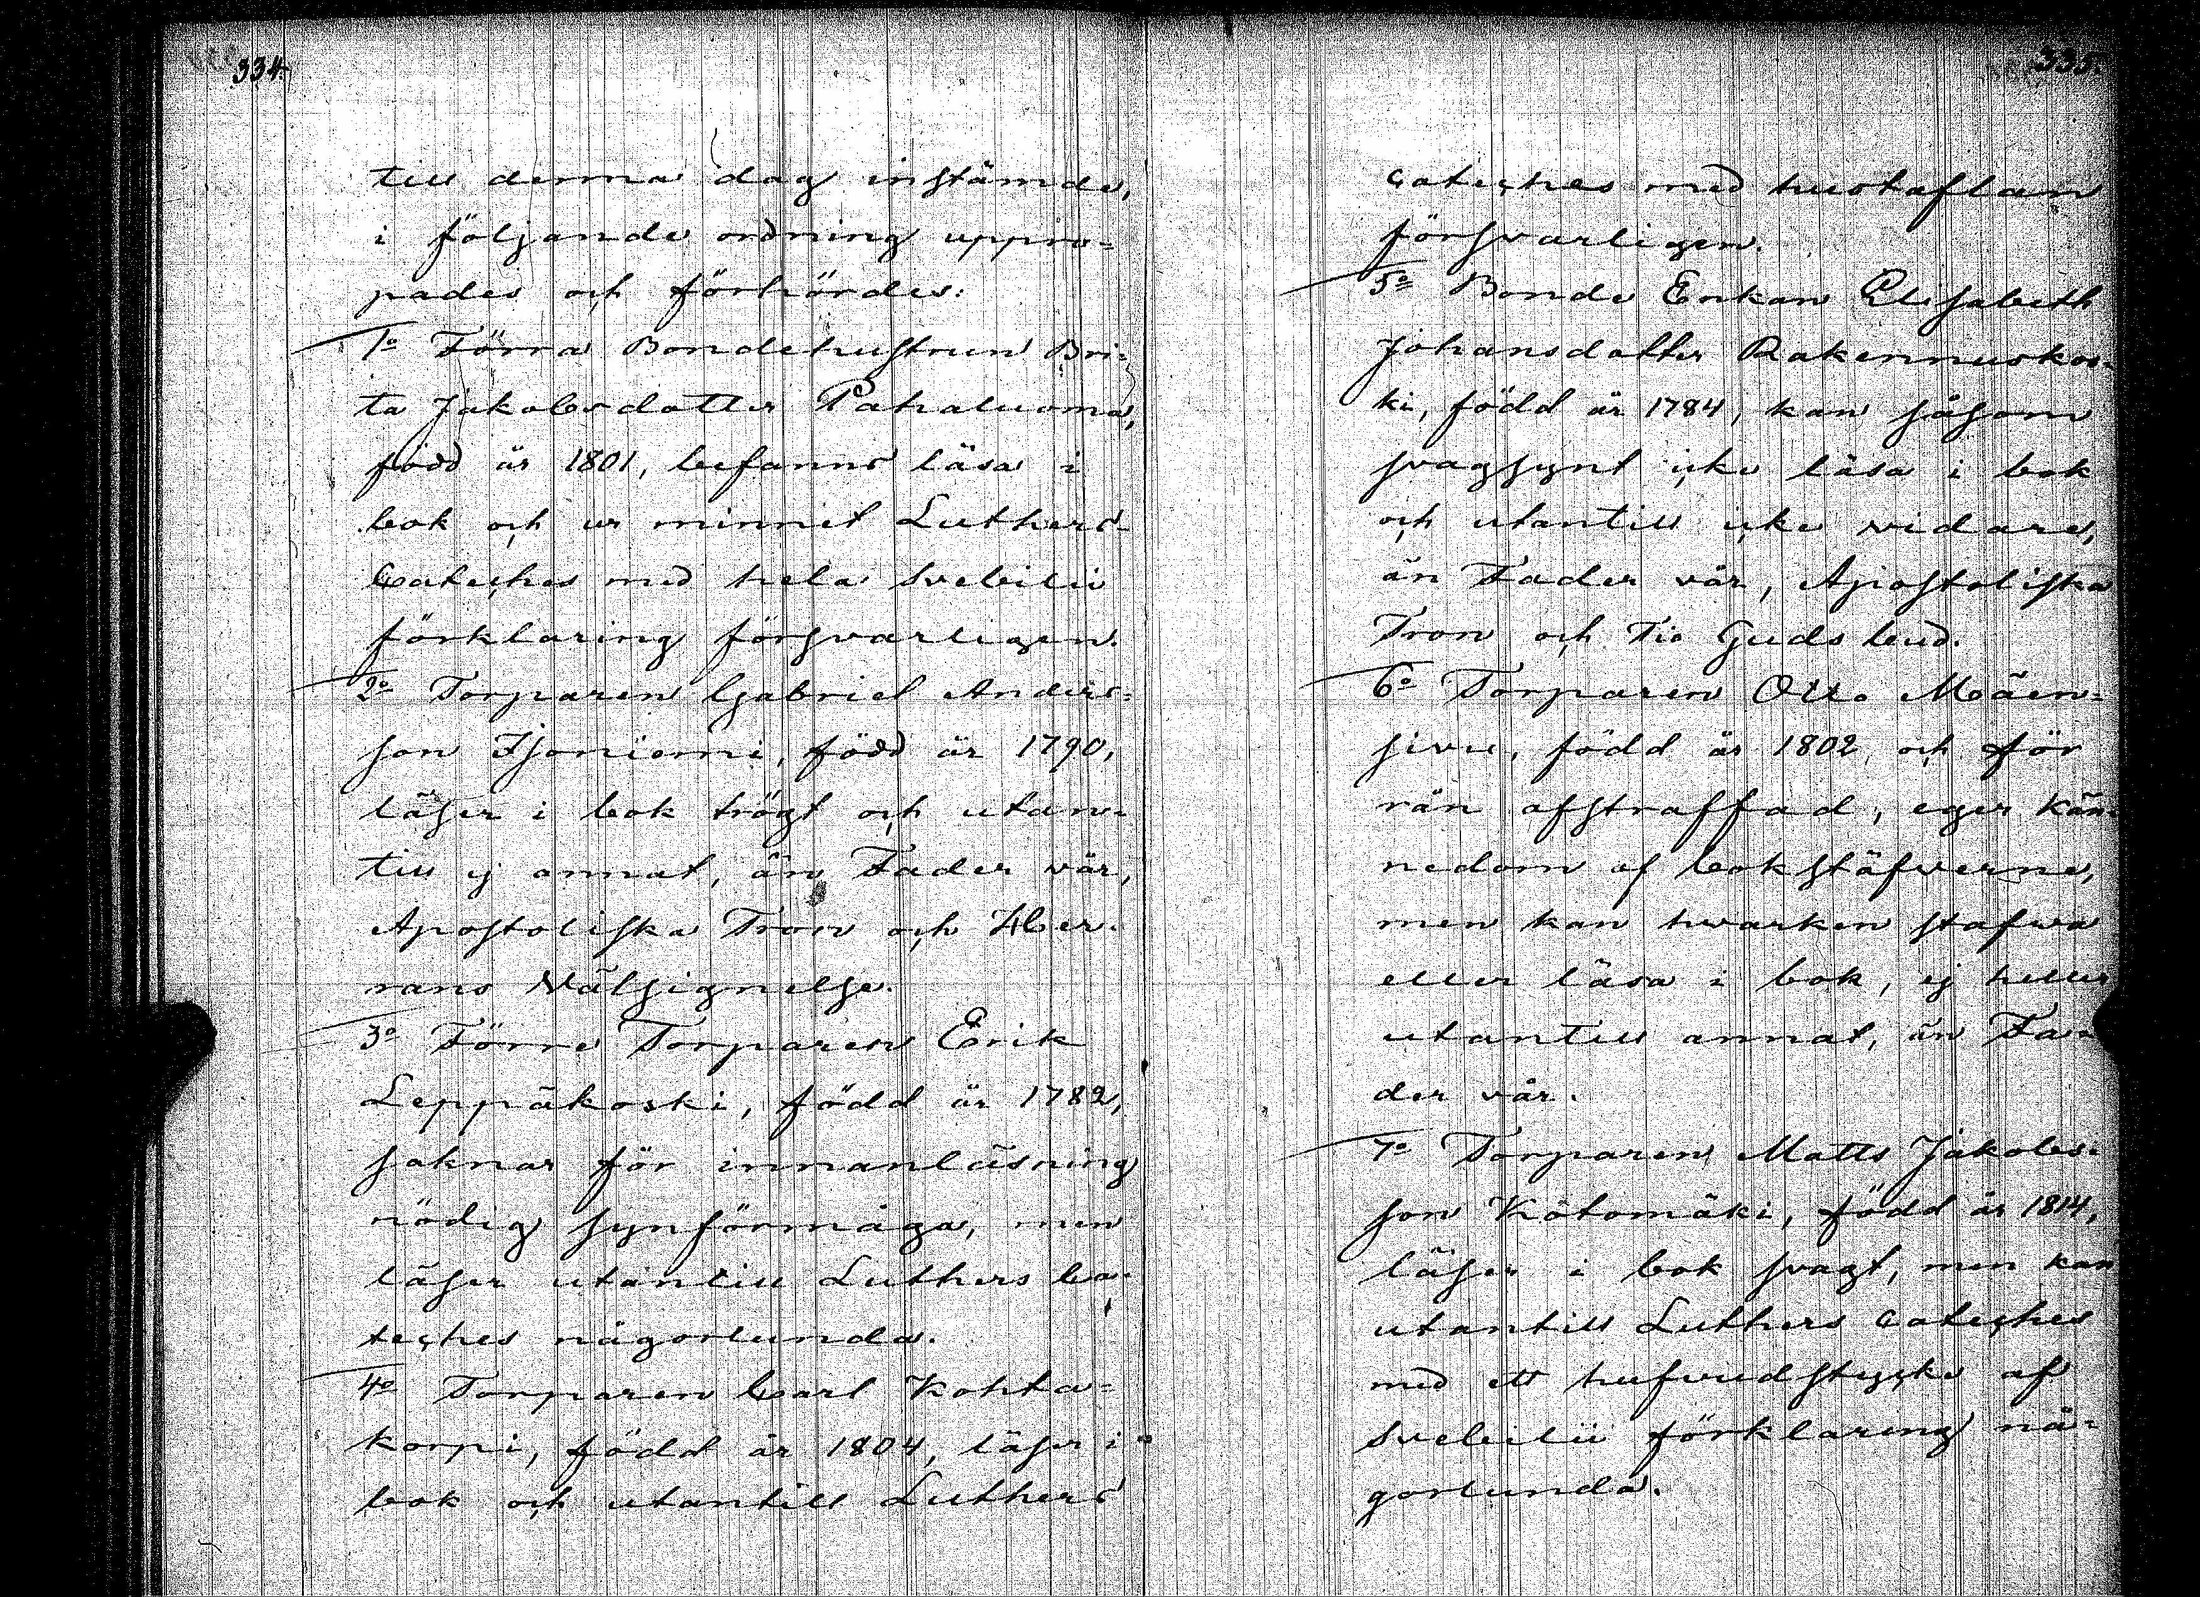 334.
till denna dag instämde,
i följande ordning uppro-
pades och förhördes:
1o Förra Bondehustrun Bri-
ta Jakobsdotter Pahaluoma,
född år 1801, befanns läsa i
bok och ur minnet Luthers
Cateches med hela Svebilii
förklaring försvarligen.
2o Torparen Gabriel Anders-
son Isoniemi, född år 1790,
läser i bok trögt och utan-
till ej annat, än Fader vår,
Apostoliska Tron och Her-
rans Välsignelse.
3o Förre Torparen Erik
Leppäkoski, född år 1782,
saknar för innanläsning
nödig synförmåga, men
läser utantill Luthers Ca-
teches någorlunda.
4o Torparen Carl Kohta-
korpi, född år 1804, läser i
bok och utantill Luthers
335.
Cateches med hustaflan
försvarligen.
5o Bonde Enkan Elisabeth
Johansdotter Rakennuskos-
ki, född år 1784, kan såsom
svagsynt icke läsa i bok
och utantill icke vidare,
än Fader vår, Apostoliska
Tron och Tio Guds bud.
6o Torparen Otto Mäen-
sivu, född år 1802 och för
rån afstraffad, eger kän-
nedom af bokstäfverne,
men kan hvarken stafva
eller läsa i bok, ej heller
utantill annat, än Fa-
der vår.
7o Torparen Matts Jakobs-
son Kötomäki, född år 1814,
läser i bok svagt, men kan
utantill Luthers Cateches
med ett hufvudstycke af
Svebilii förklaring nå-
gorlunda.